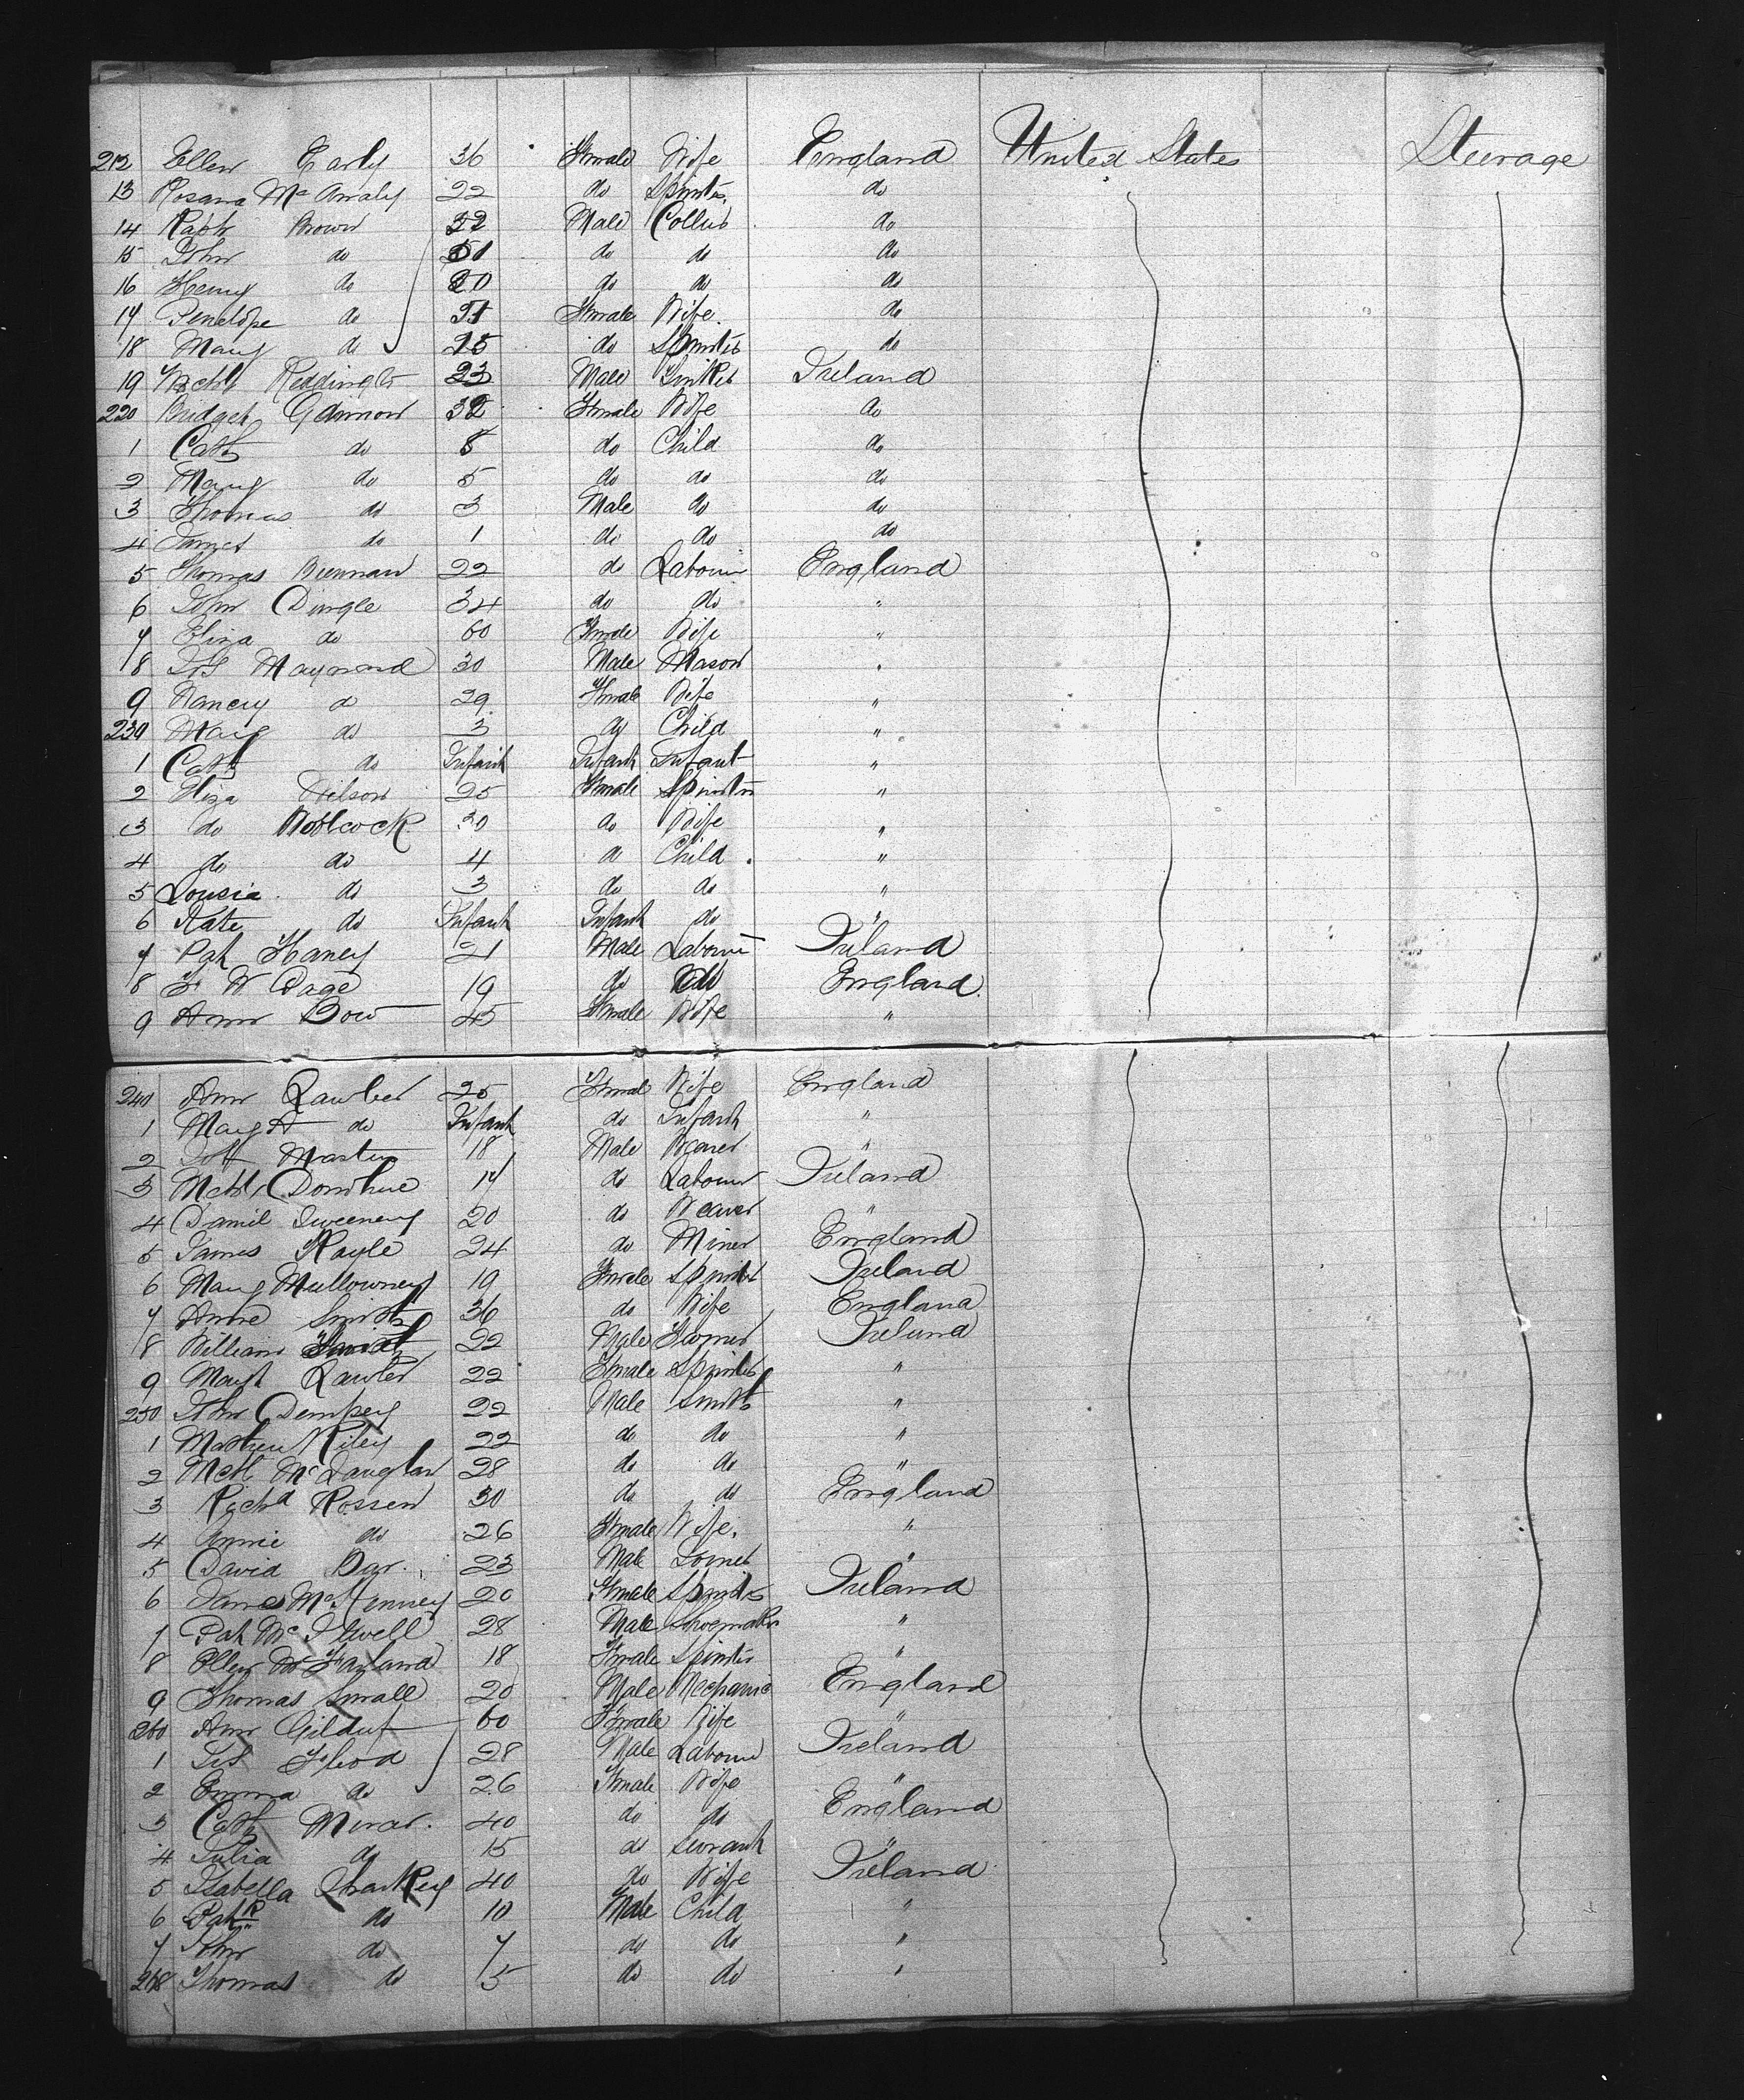 212 Ellen Early 36 Female Wife England United States Steerage
13 Rosana Mc Anally 22 do Spinster do
14 Brown 32 Male Collier do
15 John do do do do
16 Henry do 20 do do do
17 Penelope do Female Wife do
18 Mary do 25 do Spinster do
19 Mchl Reddington 23 Male Ireland
220 Bridget Gannon 32 Female Wife do
1 Cath do 8 do Child do
2 Mary do 5 do do do
3 Thomas do 3 Male do do
4 James do 1 do do do
5 Thomas Brennan 22 do Labourer England
6 John Dingle 34 do do "
7 Eliza do 60 Female Wife "
8 Jos Maynard 30 Male Mason "
9 Nancy do 29 Female Wife "
230 Mary do 3 do Child "
1 Cath do Infant Infant Infant "
2 Eliza Wilson 25 Female Spinster "
3 do Woolcock 30 do Wife "
4 do do 4 do Child "
5 Lousia do 3 do do "
6 Kate do Infant Infant do "
7 Pat Haney 21 Male Labourer Ireland
8 F W Page 19 do do England
9 Ann Bow 45 Female Wife "
240 Ann Lawler 25 Female Wife England
1 Margt do Infant do Infant "
2 Martin 18 Male Weaver "
3 Mchl Donohue 17 do Labourer Ireland
4 Daniel Sweeney 20 do Weaver "
5 James Kayle 24 do Miner England
6 Mary Mullowney 19 Female Spinster Ireland
7 Anne Smith 36 do Wife England
8 William Smith 22 Male Farmer Ireland
9 Margt Lawler 22 Female Spinster "
250 John Dempsey 22 Male Smith "
1 Mathew Riley 22 do do "
2 Mchl McLauglan 28 do do "
3 Richd Rossen 30 do do England
4 Annie do 26 Female Wife "
5 David 23 Male Joiner "
6 James McKenney 20 Female Spinster Ireland
7 Pat Mc 28 Male Shoemaker "
8 Ellen McFarland 18 Female Spinster "
9 Thomas Small 20 Male Mechanic England
260 Ann 60 Female Wife "
1 Jas Flood 28 Male Labourer Ireland
2 Emma do 26 Female Wife "
3 Cath Moran 40 do do England
4 Julia do 15 do Servant "
5 Isabella Sharkey 40 do Wife Ireland
6 Patk do 10 Male Child "
7 John do 7 do do "
268 Thomas do 5 do do "